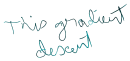 This gradient
descent